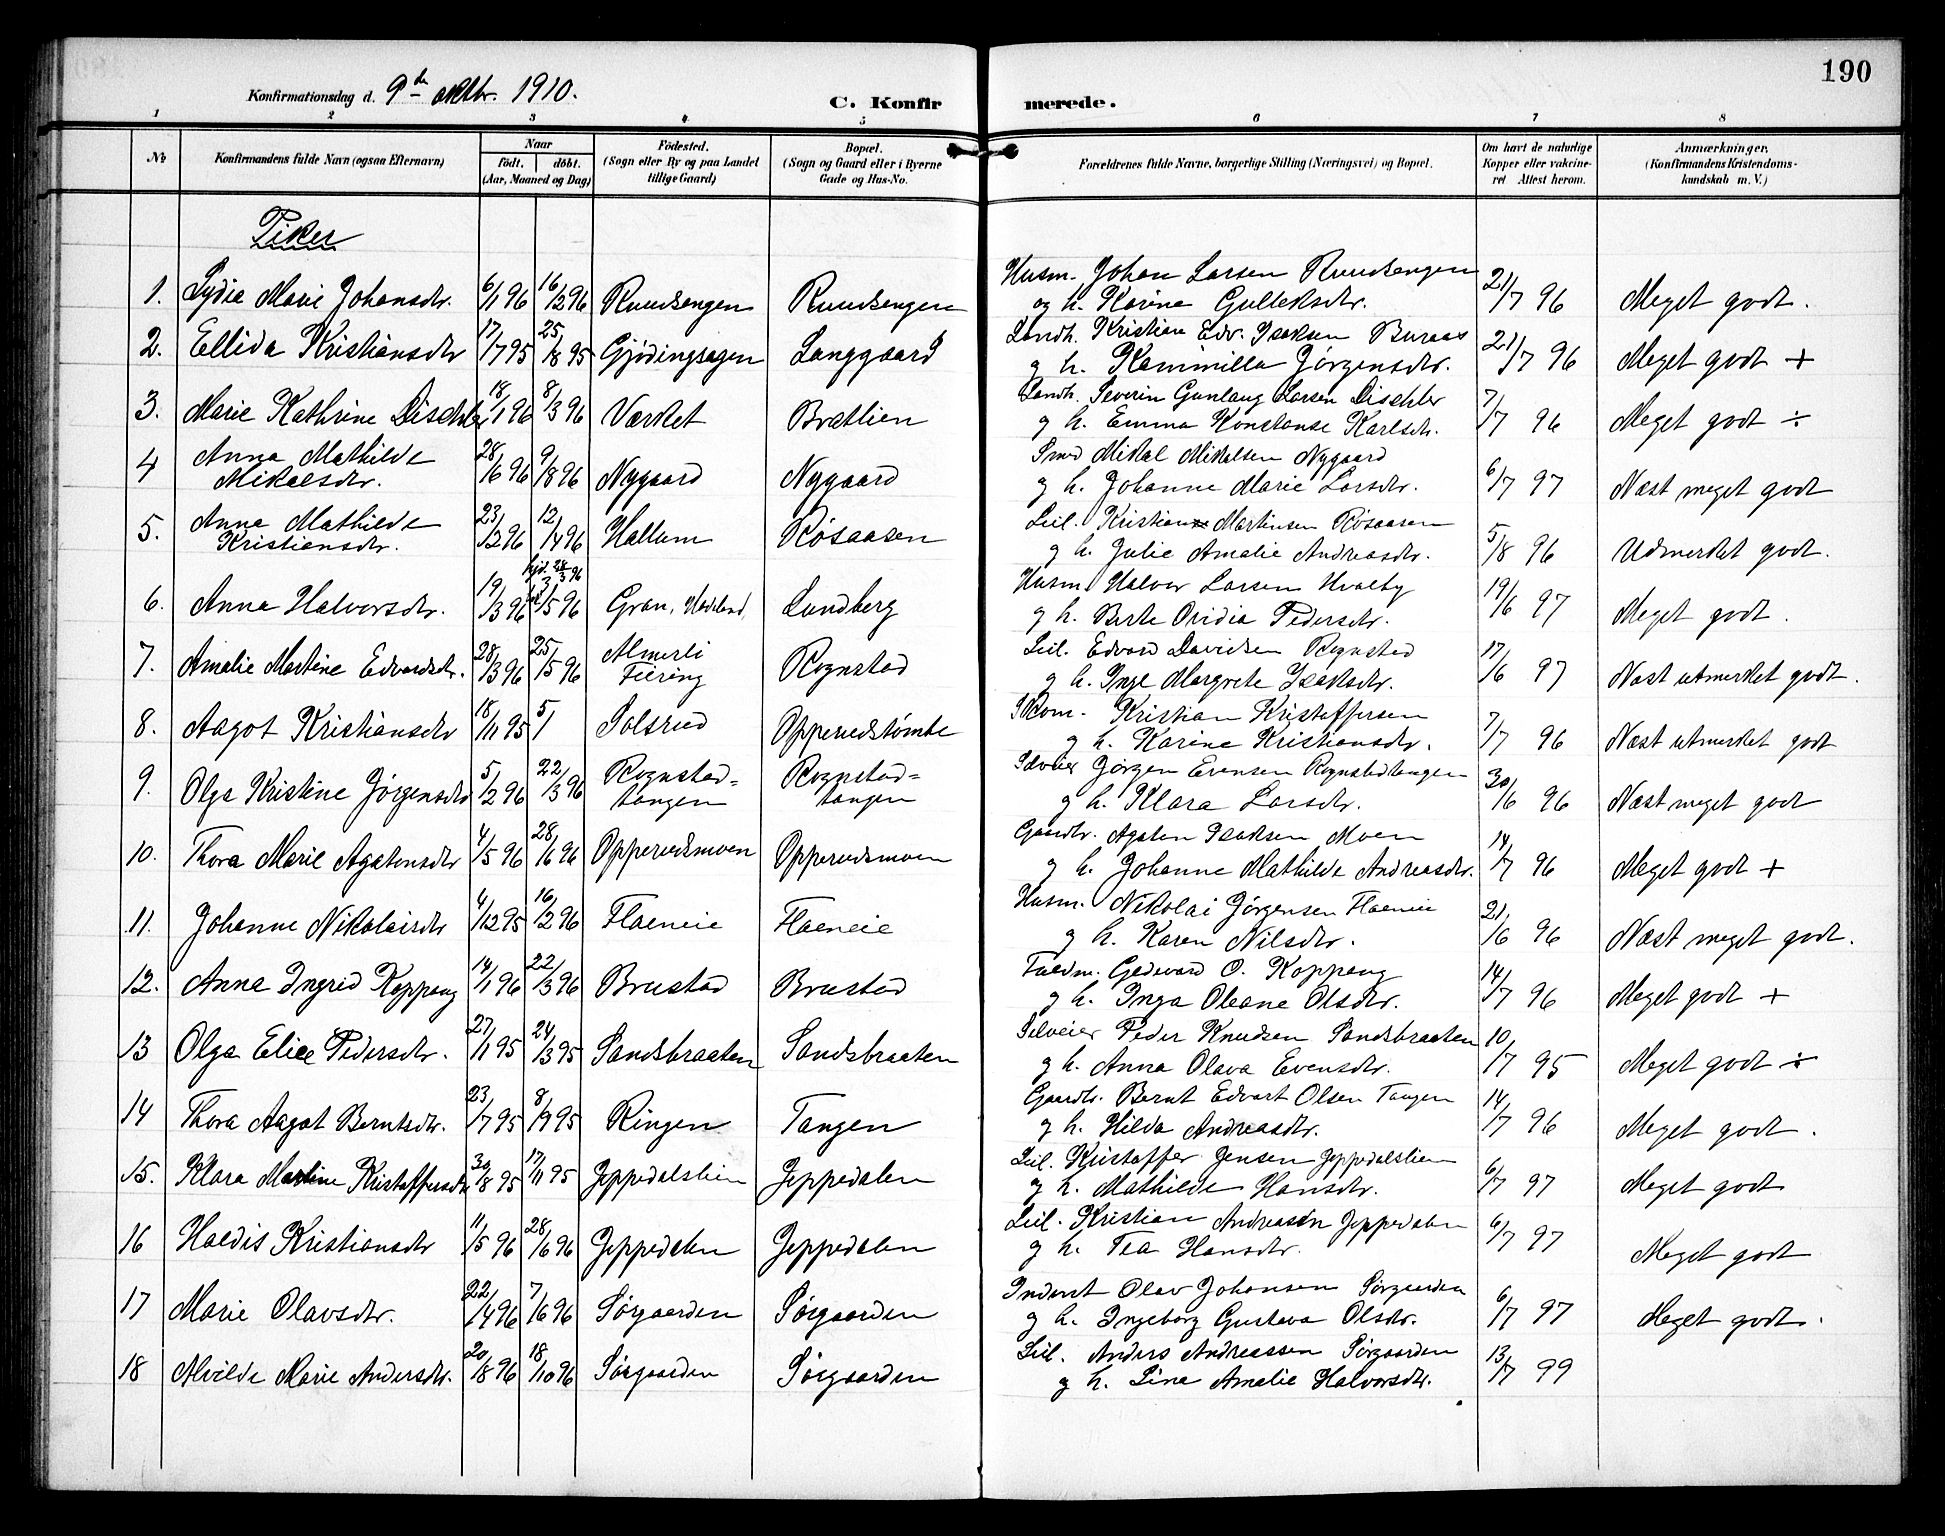 190
Konfirmationsdag d. 9de oktbr. 1910.
C. Konfirmerede.
1 2 3 4 5 6 7 8
No
Konfirmandens fulde Navn (ogsaa Efternavn)
Naar
født. døbt.
(Aar, Maaned og Dag)
Fødested.
(Sogn eller By og paa Landet
tillige Gaard)
Bopæl.
(Sogn og Gaard eller i Byerne
Gade og Hus-No.
Forældrenes fulde Navne, borgerlige Stilling (Næringsvei) og Bopæl.
Om havt de naturlige
Kopper eller vakcine-
ret Attest herom.
Anmærkninger,
(Konfirmandens Kristendoms-
kundskab m. V.)
Piker
1. Lydia Marie Johansdtr. 6/1 96 16/2 96 Ruudsengen Ruudsengen Husm. Johan Larsen Ruudsengen
og h. Karine Gulleksdtr. 21/7 96 Meget godt.
2. Ellida Kristiansdtr 17/7 95 25/8 95 Gjødingsagen Langgaard Landh. Kristian Edv. Isaksen Buraas
og h. Kammilla Jørgensdtr. 21/7 96 Meget godt +
3. Marie Kathrine Dischler 18/1 96 8/3 96 Værket Brætlien Landh. Severin Gunlaug Larsen Dischler
og h. Emma Konstanse Karlsdtr. 7/7 96 Meget godt ÷
4 Anna Mathilde
Mikalsdtr. 28/6 96 9/8 96 Nygaard Nygaard Smed Mikal Mikalsen Nygaard
og h. Johanne Marie Larsdtr. 6/7 97 Næst meget godt
5. Anna Mathilde
Kristiansdtr. 23/2 96 12/4 96 Hallum Røsaasen Leil. Kristian Martinsen Røsaasen
og h. Julie Amalie Andreasdtr. 5/8 96 Udmerket godt.
6. Anna Halvorsdtr. 19/3 96 hjd. 28/3 96 3/5 96 Gran, Hadeland, Lundberg Husm. Halvor Larsen Hvalby
og h. Berte Oridia Pedersdtr. 19/6 97 Meget godt.
7. Amalie Martine Edvardsdtr. 28/3 96 25/5 96 Almerli
Feiring Rognstad Leil. Edvard Davidsen Rognstad
og h. Inge Margrete Isaksdtr. 17/6 97 Næst utmerket godt.
8. Aagot Kristiansdtr 18/11 95 5/1 Solsrud Opperudstømte Skom. Kristian Kristoffersen
og h. Karine Kristiansdtr. 7/7 96 Næst utmerket godt
9. Olga Kristine Jørgensdtr 5/2 96 22/3 96 Rognstad-
tangen Rognstad-
tangen Jørgen Evensen Rognstadtangen
og h. Klara Larsdtr. 30/6 96 Næst meget godt
10. Thora Marie Agatonsdtr 4/5 96 28/6 96 Opperudsmoen Opperudsmoen Gaardbr. Agaton Isaksen Moen
og h. Johanne Mathilde Andreasdtr. 14/7 96 Meget godt +
11. Johanne Nikolaisdtr 4/12 95 16/2 96 Flaeneie Flaeneie Husm. Nikolai Jørgensen Flaeneie
og h. Karen Nilsdtr. 21/6 96 Næst meget godt.
12. Anna Ingrid Koppang 14/1 96 22/3 96 Brustad Brustad Fuldm. Gedevard O. Koppang
og h. Inga Oleane Olsdtr. 14/7 96 Meget godt +
13 Olga Elise Pedersdtr. 27/1 95 24/3 95 Sandsbraaten Sandsbraaten Selveier Peder Knudsen Sandsbraaten
og h. Anna Olava Evensdtr. 10/7 95 Meget godt ÷
14 Thora Aagot Berntsdtr. 23/7 95 8/9 95 Ringen Tangen Gaardbr. Bernt Edvart Olsen Tangen
og h. Hilda Andreasdtr. 14/7 96 Meget godt.
15. Klara Martine Kristoffersdtr 30/8 95 17/11 95 Jeppedalslien Jeppedalen Leil. Kristoffer Jensen Jeppedalslien
og h. Mathilde Hansdtr. 6/7 97 Meget godt
16 Haldis Kristiansdtr 11/5 96 28/6 96 Jeppedalen Jeppedalen Leil. Kristian Andreasen Jeppedalen
og h. Tea Hansdtr. 6/7 97 Meget godt
17 Marie Olavsdtr. 22/4 96 7/6 96 Sørgaarden Sørgaarden Inderst Olav Johansen Sørgaarden
og h. Ingeborg Gustava Olsdtr. 6/7 97 Meget godt.
18 Alvilde Marie Andersdtr. 20/8 96 18/10 96 Sørgaarden Sørgaarden Leil. Anders Andreassen Sørgaarden
og h. Lina Amalie Halvorsdtr. 13/7 99